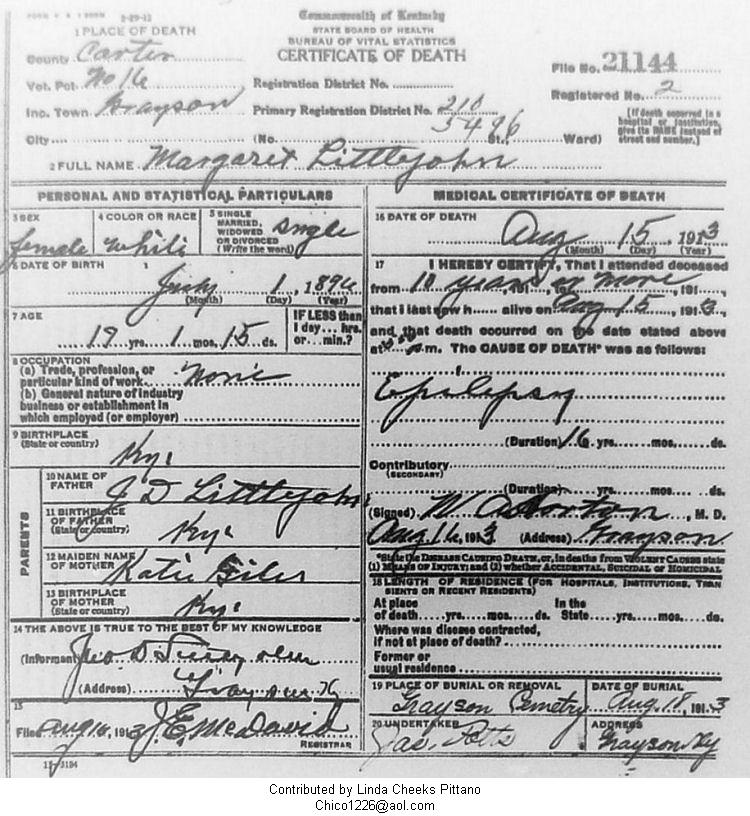 Commonwealth of Kentucky
STATE BOARD OF HEALTH
BUREAU OF VITAL STATISTICS
CERTIFICATE OF DEATH
2-29-12
1 PLACE OF DEATH
County Carter
Vot. Pct. No 16
Inc. Town Grayson
City
Registration District No.
Primary Registration District No. 210
5496
(No. St., Ward)
File No. 21144
Registered No. 2
[If death occurred in a hospital or institution, give its NAME instead of street and number.]
2 FULL NAME Margaret Littlejohn
PERSONAL AND STATISTICAL PARTICULARS
3 SEX
female
4 COLOR OR RACE
white
5 SINGLE MARRIED, WIDOWED OR DIVORCED (Write the word) single
6 DATE OF BIRTH
July 1, 1894
(Month) (Day) (Year)
7 AGE
19 yrs. 1 mos. 15 ds.
IF LESS than 1 day... hrs. or... min.?
8 OCCUPATION
(a) Trade, profession, or
particular kind of work None
(b) General nature of industry
business or establishment in
which employed (or employer)
9 BIRTHPLACE
(State or country)
Ky.
PARENTS
10 NAME OF FATHER J D Littlejohn
11 BIRTHPLACE OF FATHER (State or country) Ky.
12 MAIDEN NAME OF MOTHER Katie Giles
13 BIRTHPLACE OF MOTHER (State or country) Ky.
14 THE ABOVE IS TRUE TO THE BEST OF MY KNOWLEDGE
(Informant)
(Address) Grayson
15
Filed Aug 16, 1913 J.E. McDavid
REGISTRAR
11-3184
MEDICAL CERTIFICATE OF DEATH
16 DATE OF DEATH
Aug 15, 1913
(Month) (Day) (Year)
17 I HEREBY CERTIFY, That I attended deceased
from 10 years or more, 191
that I last saw h alive on Aug 15, 1913,
and that death occurred on the date stated above
at m. The CAUSE OF DEATH* was as follows:
Epilepsy
(Duration) 16 yrs. mos. ds.
Contributory
(SECONDARY)
(Duration) yrs. mos. ds.
(Signed) Horton, M. D.
Aug 16, 1913 (Address) Grayson
*State the DISEASE CAUSING DEATH, or, in deaths from VIOLENT CAUSES state
(1) MEANS OF INJURY; and (2) whether ACCIDENTAL, SUICIDAL OR HOMICIDAL
18 LENGTH OF RESIDENCE (FOR HOSPITALS, INSTITUTIONS, TRANSIENTS OR RECENT RESIDENTS)
At place of death yrs. mos. ds. In the State yrs. mos. ds.
Where was disease contracted,
if not at place of death?
Former or
usual residence
19 PLACE OF BURIAL OR REMOVAL
Grayson Cemetry
DATE OF BURIAL
Aug. 18, 1913
20 UNDERTAKER
Jas. Potts
ADDRESS
Grayson Ky
Contributed by Linda Cheeks Pittano
Chico1226@aol.com